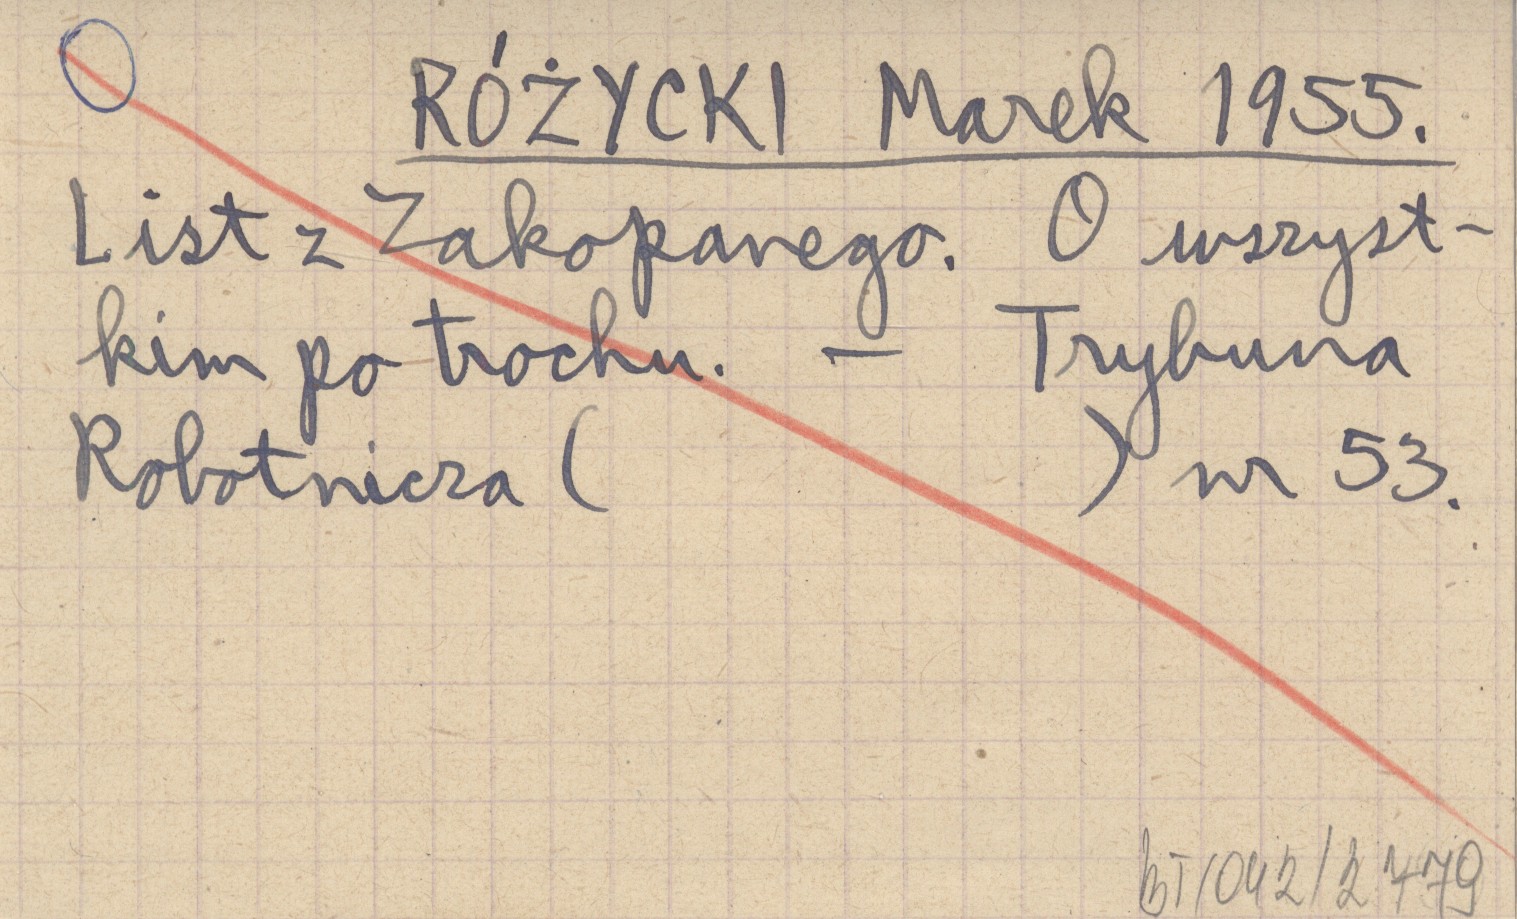 RÓŻYCKI Marek 1955.
List z Zakopanego. O wszyst-
kim po trochu. — Trybuna
Robotnicza ( ) nr 53.
BT/042/2779